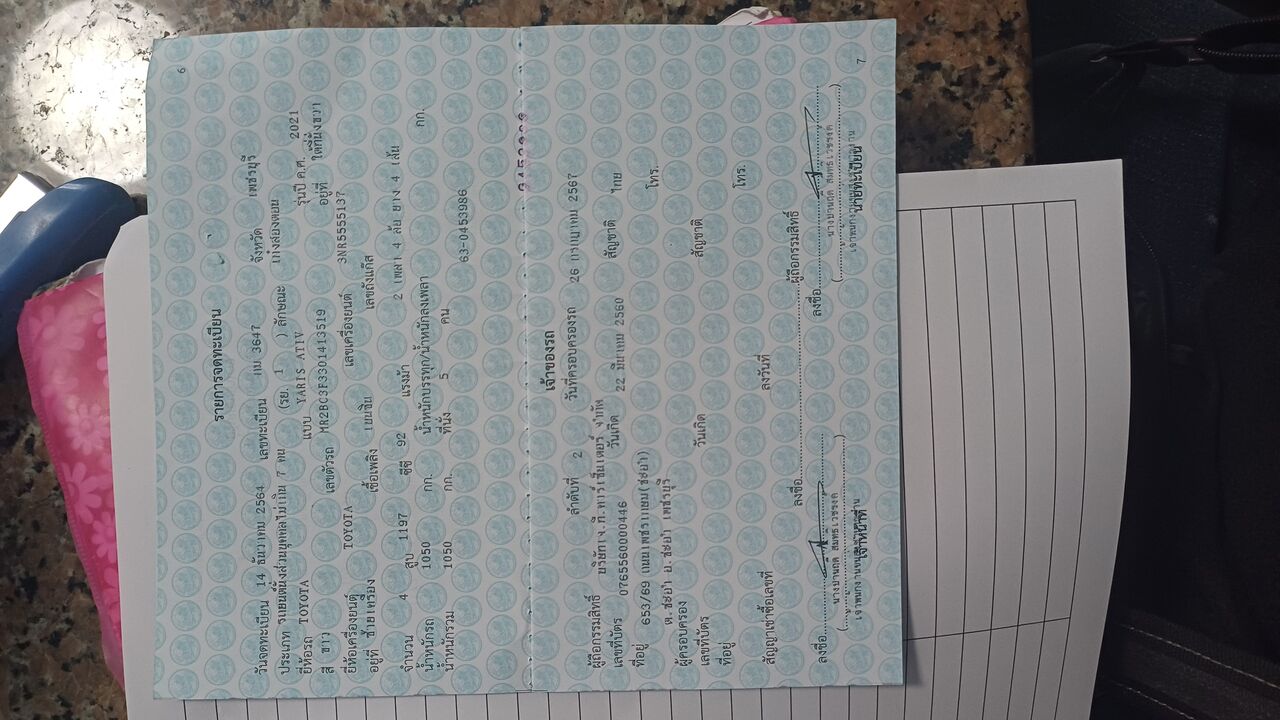 6
รายการจดทะเบียน
วันจดทะเบียน 14 ธันวาคม 2564 เลขทะเบียน 3647 จังหวัด เพชรบุรี
ประเภท รถยนต์นั่งส่วนบุคคลไม่เกิน 7 คน (รย. 1 ) ลักษณะ เก๋งสองตอน
ยี่ห้อรถ TOYOTA แบบ YARIS ATIV รุ่นปี ค.ศ. 2021
สี ขาว เลขตัวรถ MR2BC3F3301413519 อยู่ที่ ใต้ที่นั่งขวา
ยี่ห้อเครื่องยนต์ TOYOTA เลขเครื่องยนต์ 3NR5555137
อยู่ที่ ซ้ายเครื่อง เชื้อเพลิง เบนซิน เลขถังแก๊ส
จำนวน 4 สูบ 1197 ซีซี 92 แรงม้า 2 เพลา 4 ล้อ ยาง 4 เส้น
น้ำหนักรถ 1050 กก. น้ำหนักบรรทุก/น้ำหนักลงเพลา กก.
น้ำหนักรวม 1050 กก. ที่นั่ง 5 คน 63-0453986
เจ้าของรถ
ลำดับที่ 2 วันที่ครอบครองรถ 26 กรกฎาคม 2567
ผู้ถือกรรมสิทธิ์ บริษัท
เลขที่บัตร 0765560000446 วันเกิด 22 มีนาคม 2560 สัญชาติ ไทย
ที่อยู่ 653/69 ถนนเพชรเกษม(ชะอำ) โทร.
ต.ชะอำ อ.ชะอำ เพชรบุรี
ผู้ครอบครอง
เลขที่บัตร วันเกิด สัญชาติ
ที่อยู่ โทร.
สัญญาเช่าซื้อเลขที่ ลงวันที่
ลงชื่อ ผู้ถือกรรมสิทธิ์
ลงชื่อ ลงชื่อ
เจ้าหน้าที่ นายทะเบียน
7